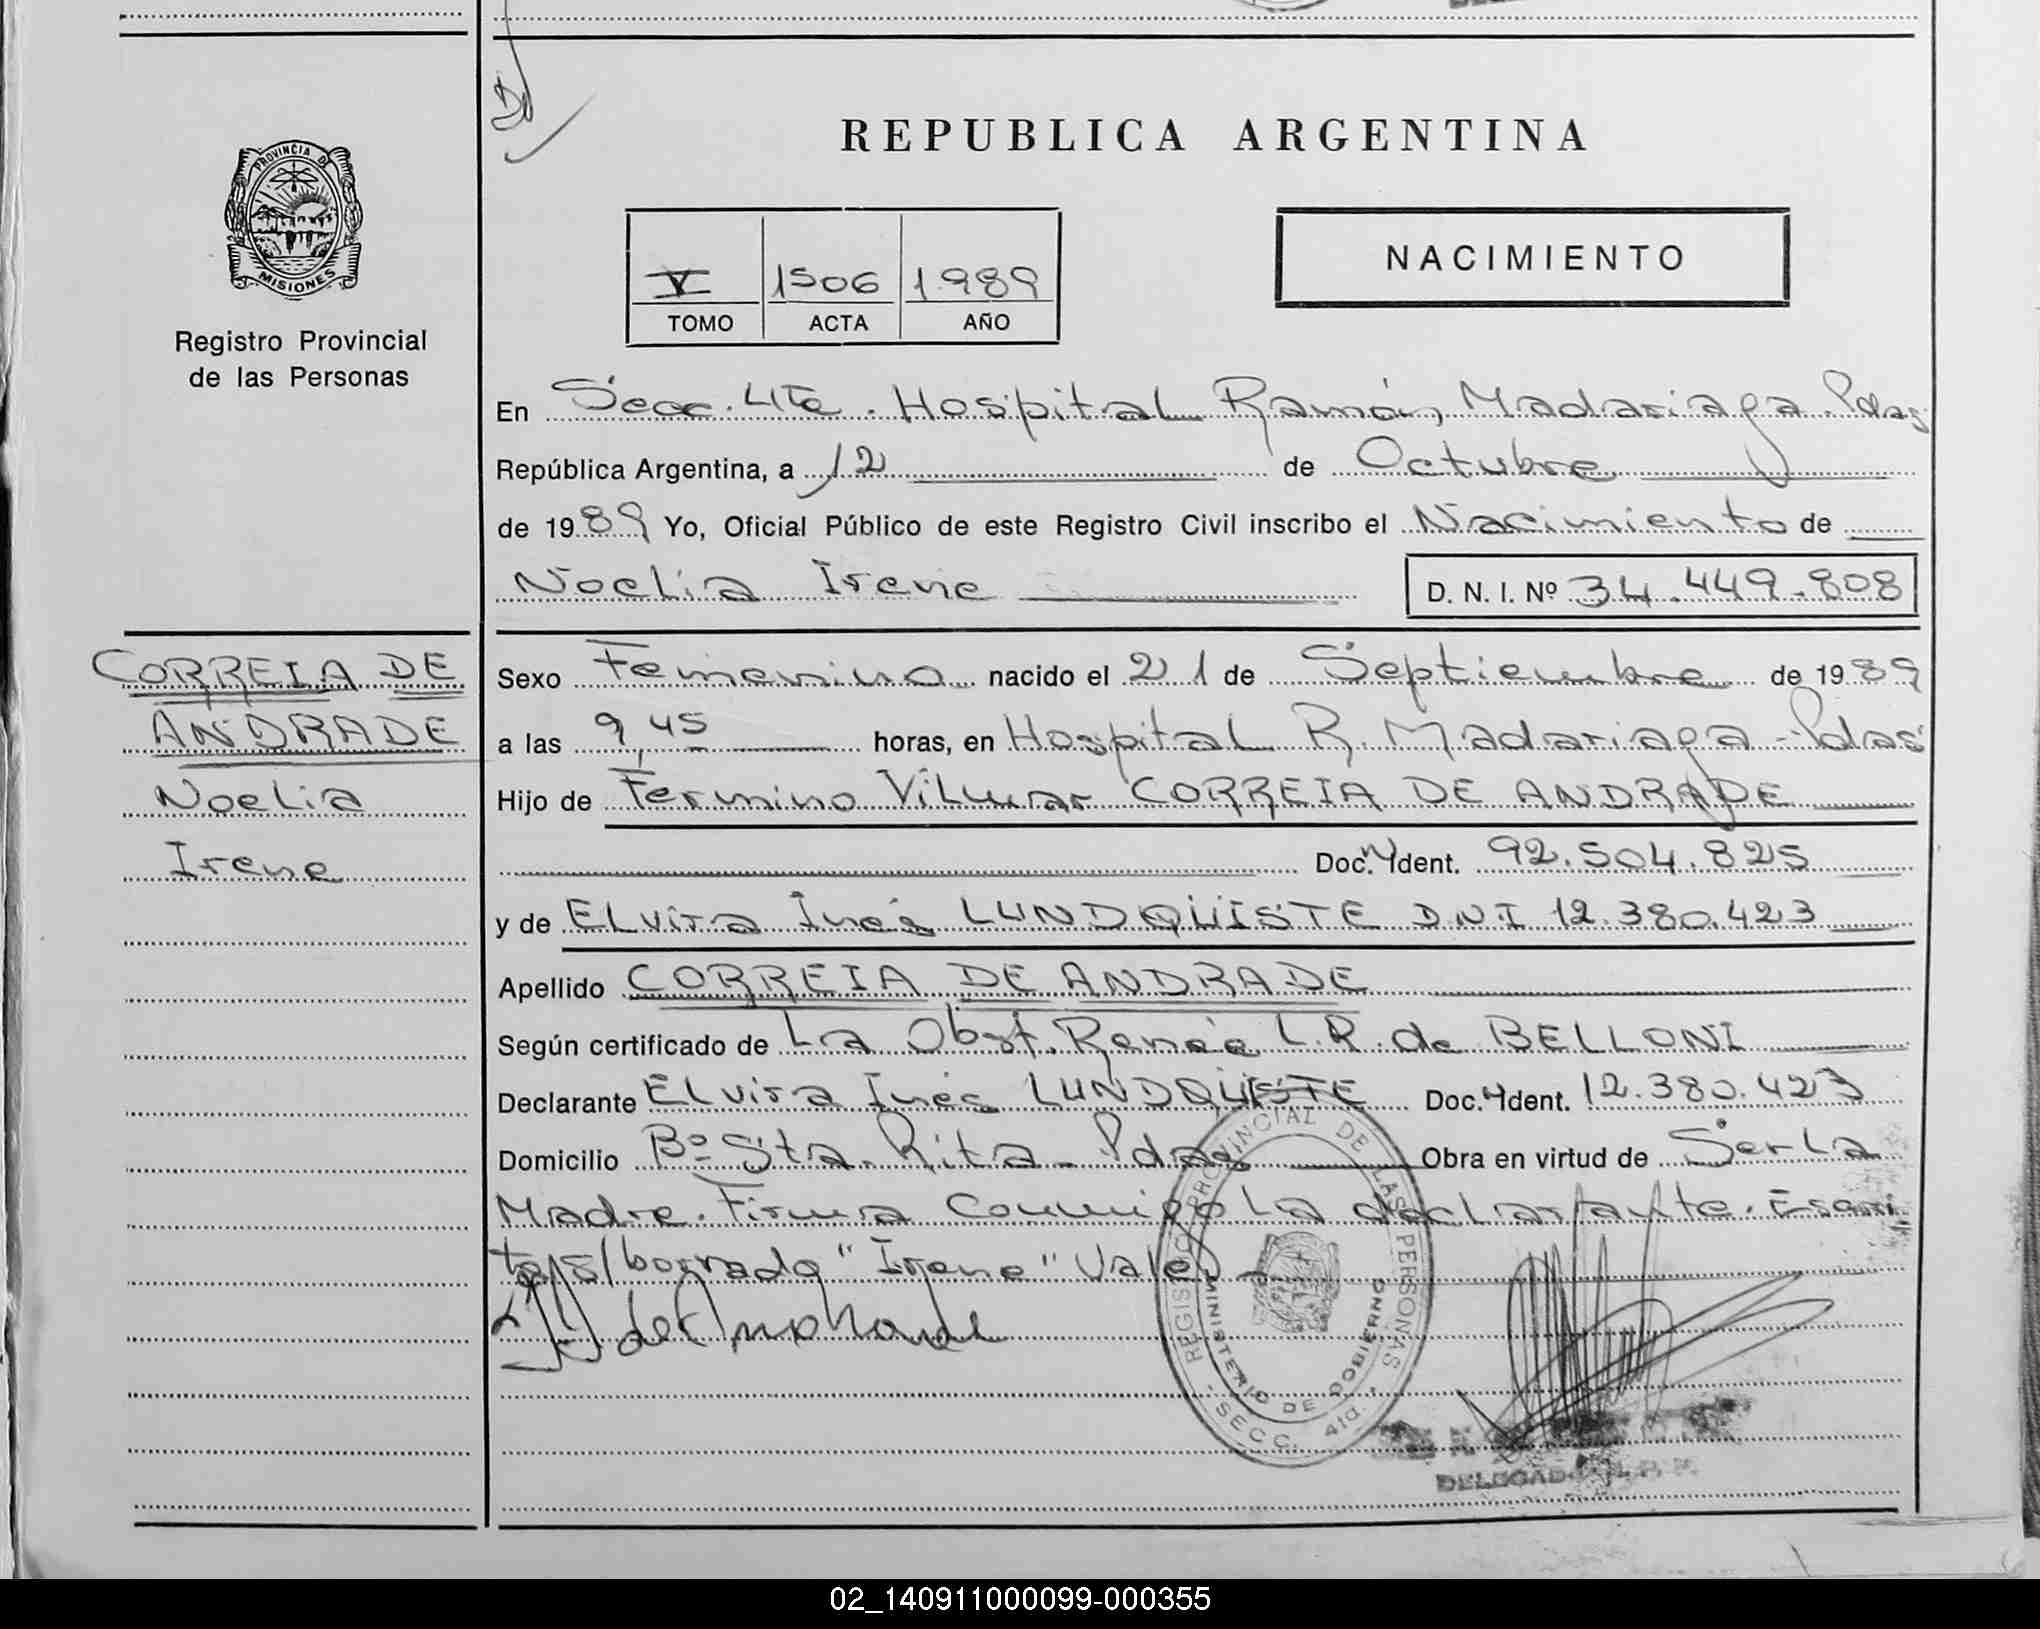 REPUBLICA ARGENTINA
PROVINCIA DE
MISIONES
Registro Provincial
de las Personas
V 1506 1.989
TOMO ACTA AÑO
NACIMIENTO
En Secc. 4ta. Hospital Ramón Madariaga. Pdas
República Argentina, a 12 de Octubre
de 1989 Yo, Oficial Público de este Registro Civil inscribo el Nacimiento de
Noelia Irene D. N. I. Nº 34.449.808
CORREIA DE
ANDRADE
Noelia
Irene
Sexo Femenino nacido el 21 de Septiembre de 1989
a las 9,45 horas, en Hospital R. Madariaga - Pdas
Hijo de Fermino Vilmar CORREIA DE ANDRADE
Doc. Ident. 92.504.825
y de Elvira Inés LUNDQÜISTE D.N.I 12.380.423
Apellido CORREIA DE ANDRADE
Según certificado de La Obst. Renée L.R. de BELLONI
Declarante Elvira Inés LUNDQÜISTE Doc. Ident. 12.380.423
Domicilio Bº Sta. Rita - Pdas Obra en virtud de Ser la
Madre. Firma Conmigo la declarante. Escri
to s/borrado "Irene" Vale
REGISTRO PROVINCIAL DE LAS PERSONAS
MINISTERIO DE GOBIERNO
- SECC. 4ta. -
DELEGADO R. P. P.
02_140911000099-000355